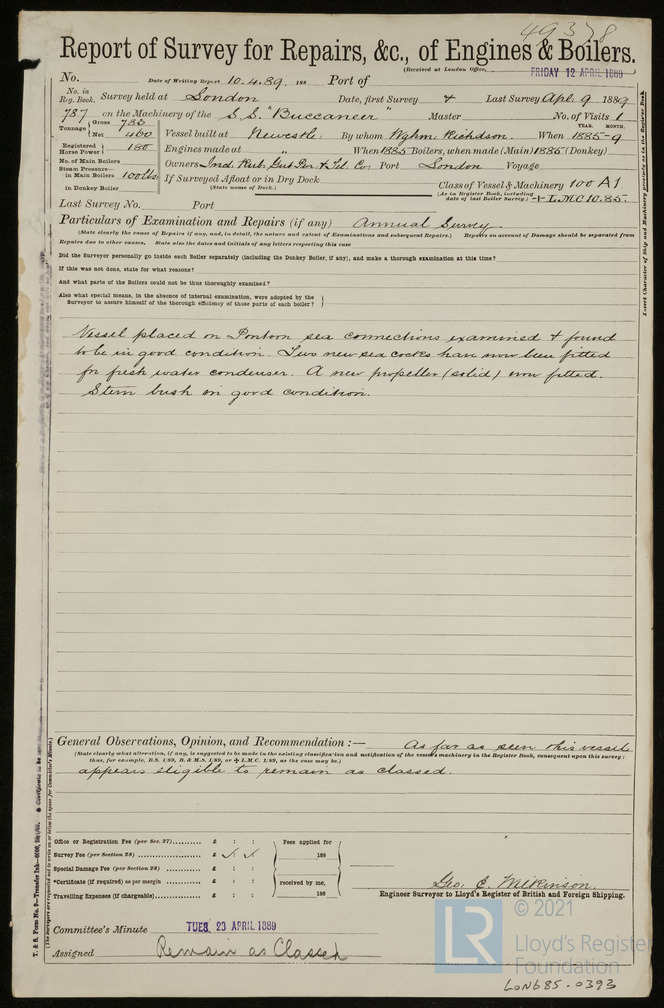 49378
Report of Survey for Repairs, &c., of Engines & Boilers.
(Received at London Office, FRIDAY 12 APRIL 1889
No. Date of Writing Report 10.4.89. 188 Port of
No. in Reg. Book. Survey held at London Date, first Survey & Last Survey Apl. 9 1889
787 on the Machinery of the S.S. "Buccaneer" Master No. of Visits 1
Tonnage Gross 785 Net 460 Vessel built at Newcstle. By whom Wghm. Richdson. When YEAR. MONTH. 1885-9
Registered Horse Power 180 Engines made at " When 1885 Boilers, when made (Main) 1885 (Donkey)
No. of Main Boilers Owners Ind. Rub. Gut Per. & Tel. Co. Port London Voyage
Steam Pressure— in Main Boilers 100 lbs. If Surveyed Afloat or in Dry Dock Class of Vessel & Machinery 100 A1
in Donkey Boiler (State name of Dock.) (As in Register Book, including date of last Boiler Survey.) L.M.C. 10.85.
Last Survey No. Port
Particulars of Examination and Repairs (if any) Annual Survey.
(State clearly the cause of Repairs if any, and, in detail, the nature and extent of Examinations and subsequent Repairs.) Repairs on account of Damage should be separated from
Repairs due to other causes. State also the dates and initials of any letters respecting this case
Did the Surveyor personally go inside each Boiler separately (including the Donkey Boiler, if any), and make a thorough examination at this time?
If this was not done, state for what reasons?
And what parts of the Boilers could not be thus thoroughly examined?
Also what special means, in the absence of internal examination, were adopted by the
Surveyor to assure himself of the thorough efficiency of those parts of each boiler?
Vessel placed on Pontoon sea connections examined & found
to be in good condition. Two new sea cocks have now been fitted
for fresh water condenser. A new propeller (solid) now fitted.
Stern bush in good condition.
General Observations, Opinion, and Recommendation:— As far as seen this vessel
(State clearly what alteration, if any, is suggested to be made in the existing classification and notification of the vessel's machinery in the Register Book, consequent upon this survey;
thus, for example, B.S. 1/89, B. & M.S. 1/89, or ✠ L.M.C. 1/89, as the case may be.)
appears eligible to remain as classed.
Office or Registration Fee (per Sec. 27) £ : : Fees applied for
Survey Fee (per Section 28) £ : : 188
Special Damage Fee (per Section 28) £ : :
*Certificate (if required) as per margin £ : : received by me,
Travelling Expenses (if chargeable) £ : : 188
Geo. C. Wilkinson.
Engineer Surveyor to Lloyd's Register of British and Foreign Shipping.
Committee's Minute TUES. 23 APRIL 1889
Assigned Remain as Classed
LR © 2021
Lloyd's Register
Foundation
LON685-0393